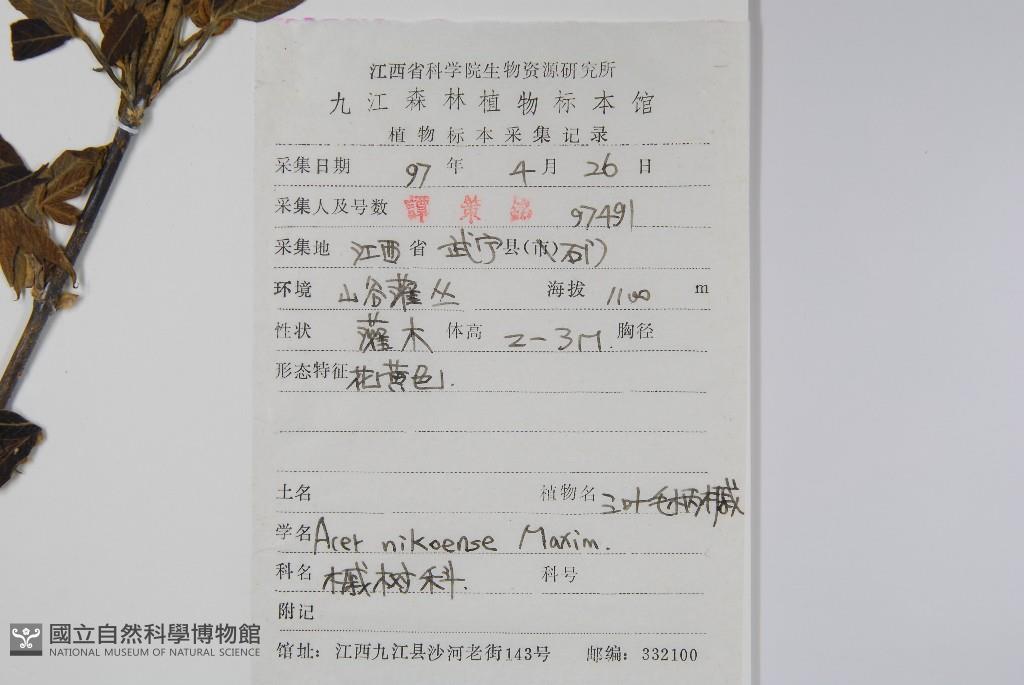 江西省科学院生物资源研究所
九江森林植物标本馆
植物标本采集记录
采集日期 97 年 4 月 26 日
采集人及号数 譚策銘 97491
采集地 江西 省 武宁 县(市)(石门)
环境 山谷灌丛 海拔 1100 m
性状 灌木 体高 2-3M. 胸径
形态特征 花黄色.
土名 植物名 三叶毛柄槭
学名 Acer nikoense Maxim.
科名 槭树科. 科号
附记
馆址: 江西九江县沙河老街143号 邮编: 332100
國立自然科學博物館
NATIONAL MUSEUM OF NATURAL SCIENCE